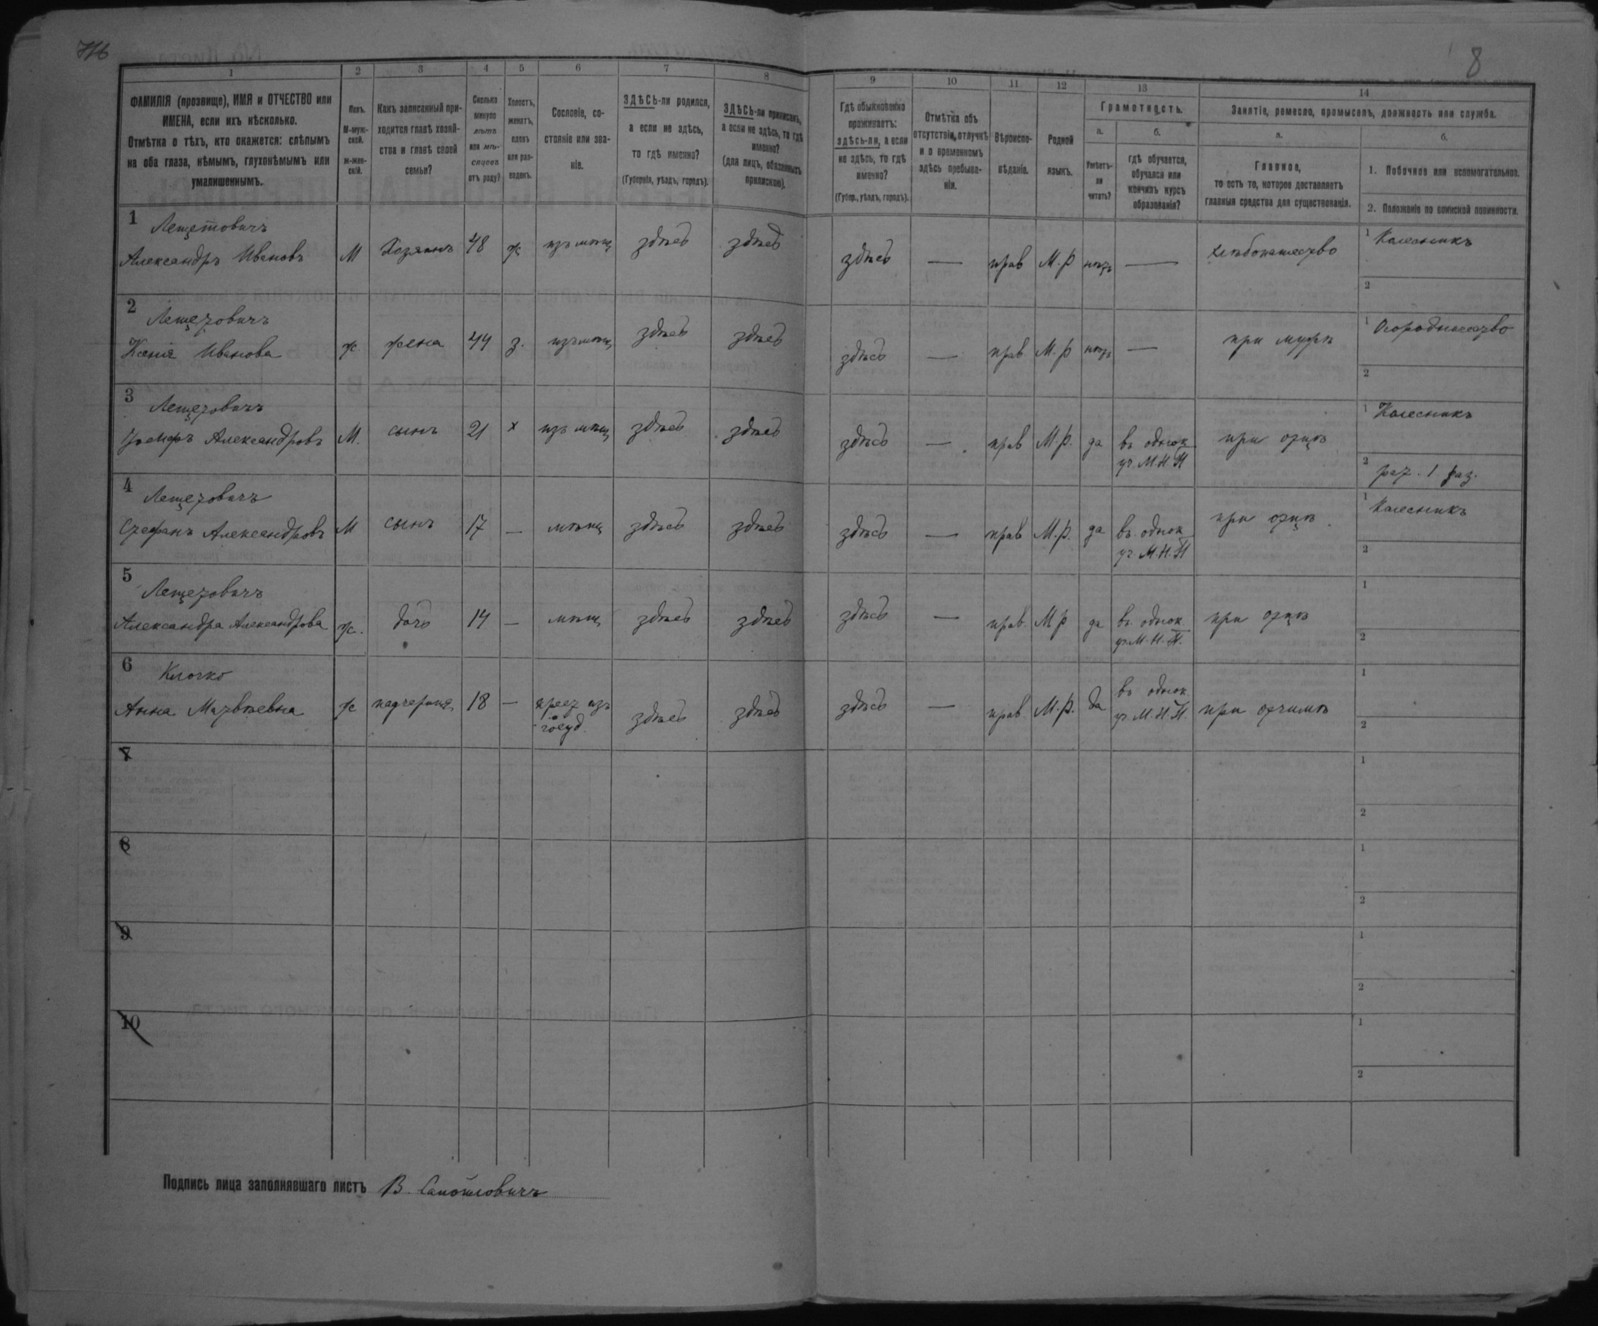 8
1 2 3 4 5 6 7 8 9 10 11 12 13 14
ФАМИЛІЯ (прозвище), ИМЯ и ОТЧЕСТВО или ИМЕНА, если ихъ нѣсколько.
Отмѣтка о тѣхъ, кто окажется: слѣпымъ на оба глаза, нѣмымъ, глухонѣмымъ или умалишеннымъ.
Какъ записанный приходится главѣ хозяйства и главѣ своей семьи?
Сословіе, состояніе или званіе.
ЗДѢСЬ-ли родился, а если не здѣсь, то гдѣ именно?
(Губернія, уѣздъ, городъ).
ЗДѢСЬ-ли приписанъ, а если не здѣсь, то гдѣ именно?
(для лицъ, обязанныхъ припискою).
Гдѣ обыкновенно проживаетъ: здѣсь-ли, а если не здѣсь, то гдѣ именно?
(Губер., уѣздъ, городъ).
Отмѣтка объ отсутствіи, отлучкѣ и о временномъ здѣсь пребываніи.
Вѣроисповѣданіе.
Родной языкъ.
Грамотность.
а.
Умѣетъ-ли читать?
б.
гдѣ обучается, обучался или кончилъ курсъ образованія?
Занятіе, ремесло, промыселъ, должность или служба.
а.
Главное,
то есть то, которое доставляетъ главныя средства для существованія.
б.
1. Побочное или вспомогательное.
2. Положеніе по воинской повинности.
1
Александръ Ивановъ М Хозяинъ 48 ж изъ мѣщ здѣсь здѣсь здѣсь — прав М.Р нѣтъ — хлѣбопашество 1 Колесникъ
2
2
Ксенія Иванова ж жена 44 з. изъ мѣщ здѣсь здѣсь здѣсь — прав М.Р нѣтъ — при мужѣ 1 Огородничество
2
3
Іосифъ Александровъ М. сынъ 21 х изъ мѣщ здѣсь здѣсь здѣсь — прав М.Р. да въ однок при отцѣ 1 Колесникъ
уч. М.Н.П 2 рат. 1 раз.
4
Стефанъ Александровъ М сынъ 17 — мѣщ здѣсь здѣсь здѣсь — прав М.Р. да въ однок при отцѣ 1 Колесникъ
уч М.Н.П 2
5
Александра Александрова ж. дочь 14 — мѣщ здѣсь здѣсь здѣсь — прав М.Р да въ однок при отцѣ 1
уч М.Н.П. 2
6 Клочко
Анна Матвѣевна ж падчерица 18 — крест изъ здѣсь здѣсь здѣсь — прав М.Р. да въ однок. при отчимѣ 1
госуд. уч. М.Н.П 2
7 1
2
8 1
2
9 1
2
10 1
2
Подпись лица заполнявшаго листъ